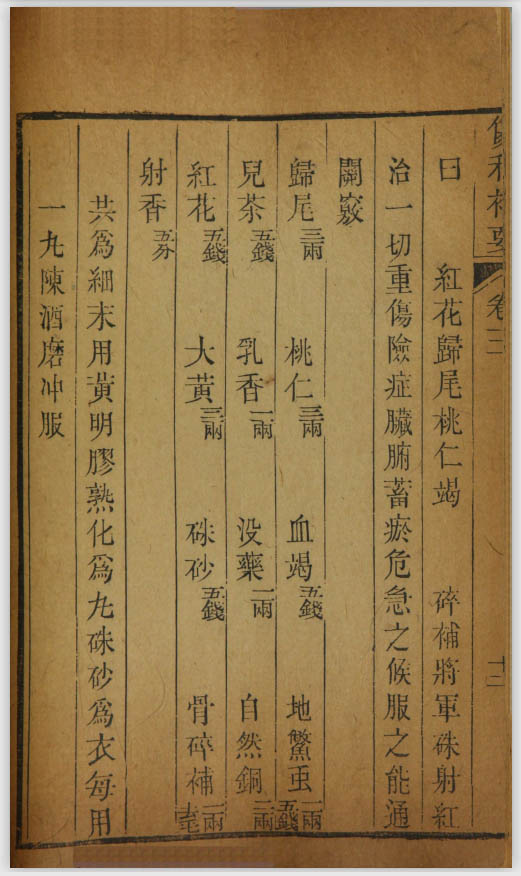 卷三
十二
曰 紅花歸尾桃仁竭 碎補將軍硃射紅
治一切重傷險症臟腑蓄瘀危急之候服之能通
開竅
歸尾三兩 桃仁三兩 血竭五錢 地鱉虫一兩五錢
兒茶五錢 乳香一兩 没藥一兩 自然銅二兩
紅花五錢 大黃三兩 硃砂五錢 骨碎補二兩去毛
射香五分
共爲細末用黃明膠熟化爲丸硃砂爲衣每用
一丸陳酒磨冲服